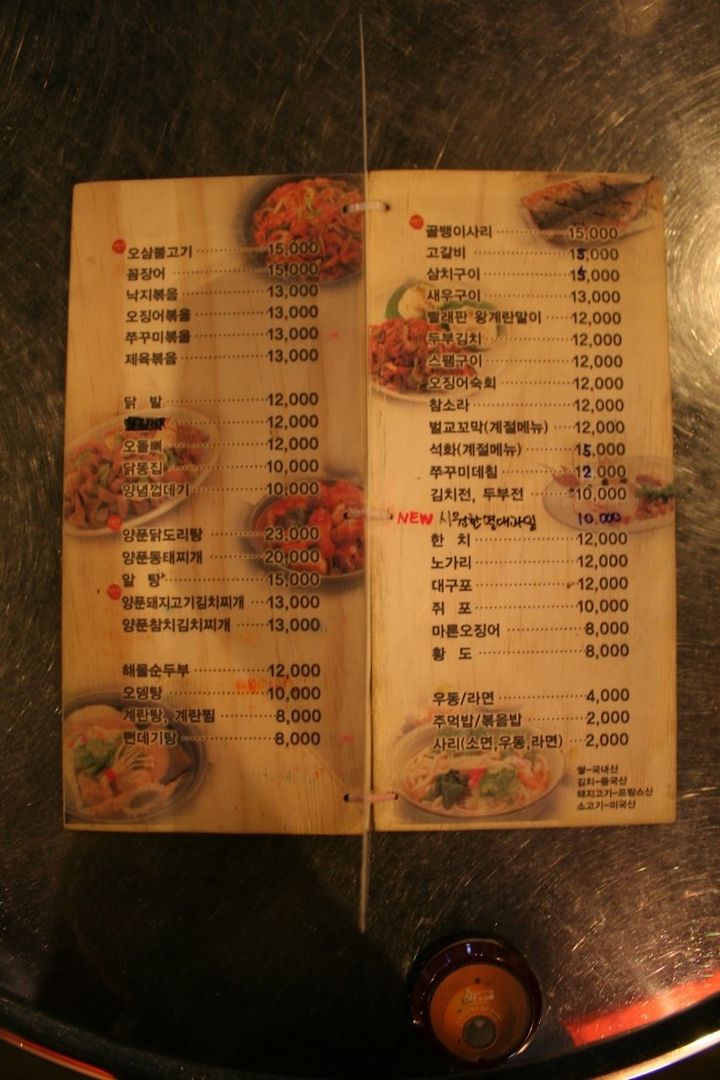 오삼불고기 15,000
꼼장어 15,000
낙지볶음 13,000
오징어볶음 13,000
쭈꾸미볶음 13,000
제육볶음 13,000
닭 발 12,000
12,000
오돌뼈 12,000
닭똥집 10,000
양념껍데기 10,000
양푼닭도리탕 23,000
양푼동태찌개 20,000
알 탕 15,000
양푼돼지고기김치찌개 13,000
양푼참치김치찌개 13,000
해물순두부 12,000
오뎅탕 10,000
계란탕, 계란찜 8,000
뻔데기탕 8,000
골뱅이사리 15,000
고갈비 15,000
삼치구이 15,000
새우구이 13,000
빨래판 왕계란말이 12,000
두부김치 12,000
스팸구이 12,000
오징어숙회 12,000
참소라 12,000
벌교꼬막(계절메뉴) 12,000
석화(계절메뉴) 15,000
쭈꾸미데침 12,000
김치전, 두부전 10,000
NEW 시원한 10,000
한 치 12,000
노가리 12,000
대구포 12,000
쥐 포 10,000
마른오징어 8,000
황 도 8,000
우동/라면 4,000
주먹밥/볶음밥 2,000
사리(소면,우동,라면) 2,000
쌀-국내산
김치-중국산
돼지고기-프랑스산
소고기-미국산